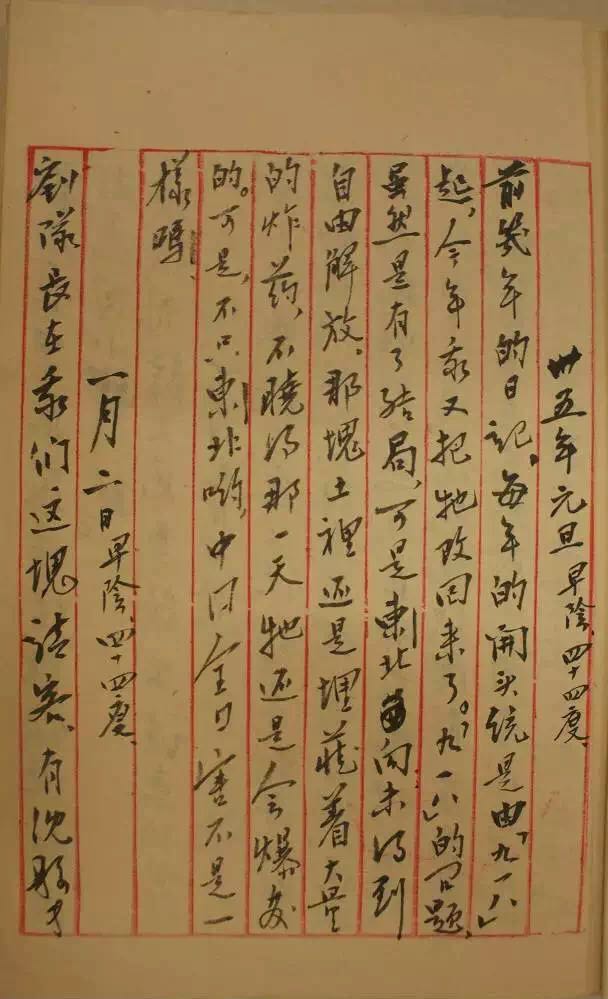 卅五年元旦 早陰，四十四度，
前几年的日記，每年的開头統是由「九一八」
起，今年我又把牠改回来了。「九一八」的问题，
虽然是有了结局，可是東北尚未得到
自由解放，那塊土裡还是埋藏着大量
的炸药，不曉得那一天牠还是会爆发
的。可是，不只東北哟，中国全国害不是一
樣嗎，
一月二日 早陰，四十四度，
劉隊長在我们这塊請客，有沈